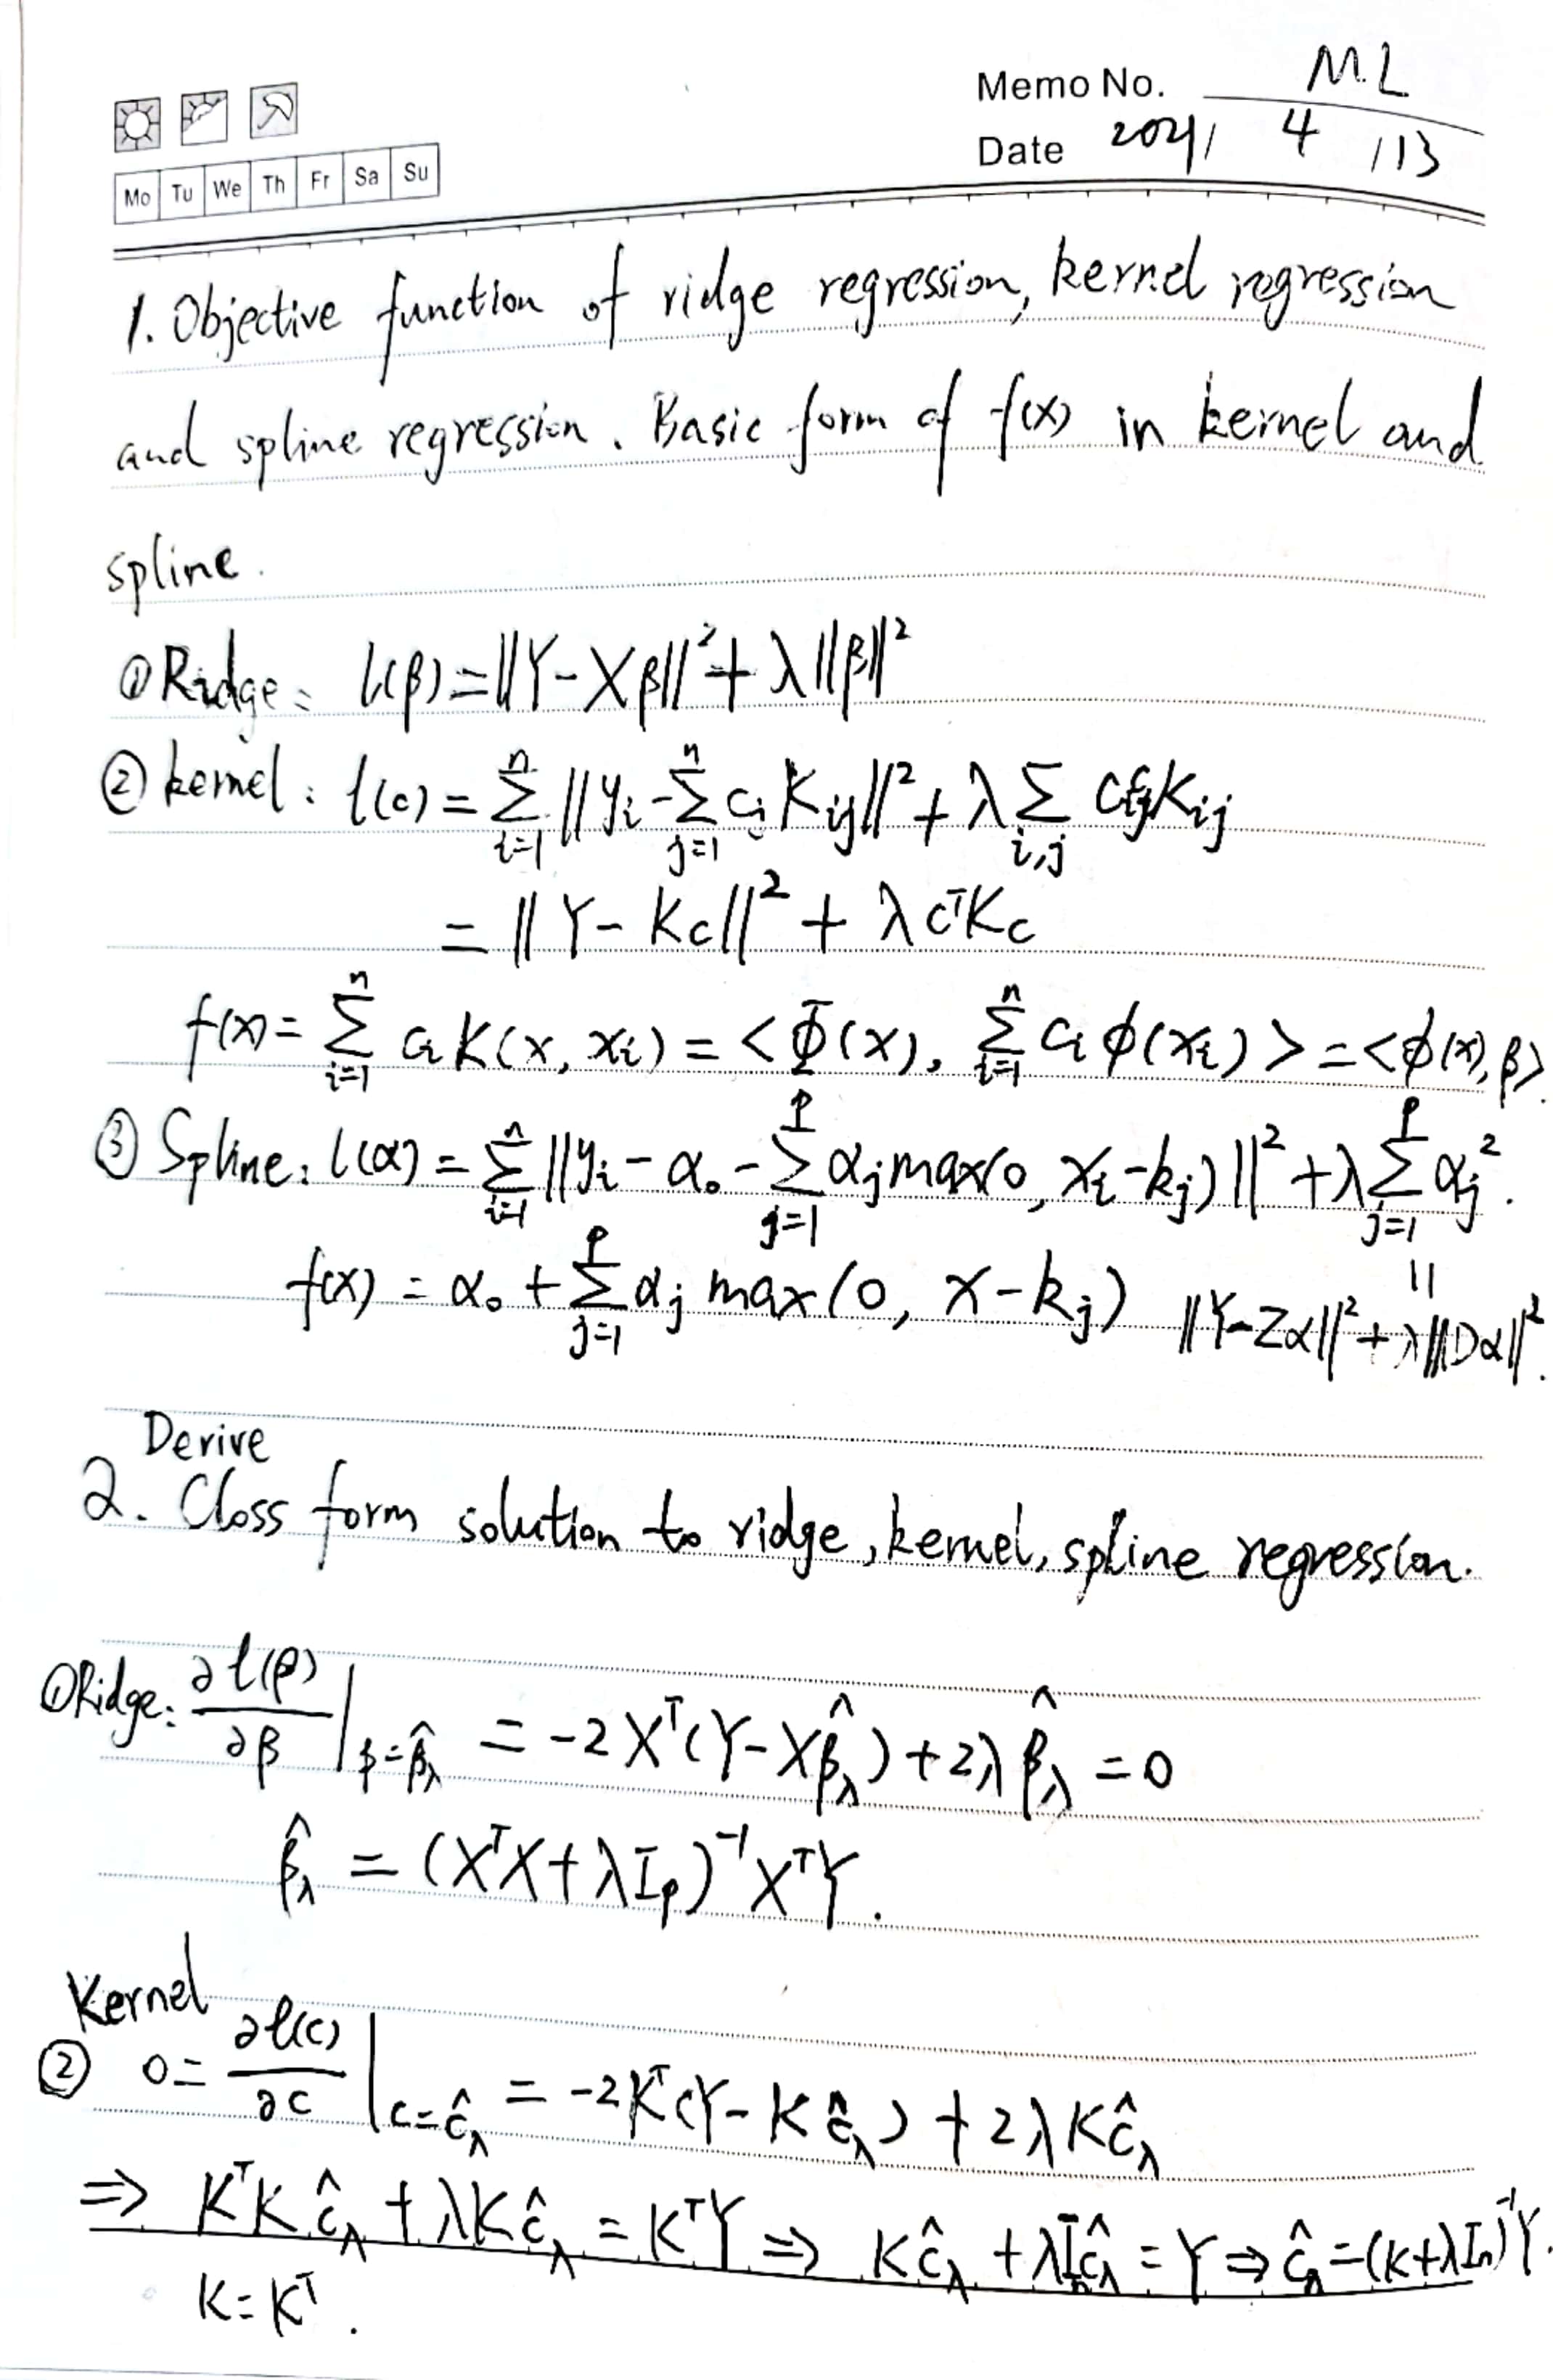 Memo No. ML
Mo Tu We Th Fr Sa Su
Date 2021/ 4 /13
1. Objective function of ridge regression, kernel regression
and spline regression. Basic form of f(x) in kernel and
spline.
① Ridge: l(β) = ||Y - Xβ||² + λ||β||²
② kernel: l(c) = Σ_{i=1}^{n} ||y_i - Σ_{j=1}^{n} c_j K_ij||² + λ Σ_{i,j} c_i c_j K_ij
= ||Y - Kc||² + λ cᵀKc
f(x) = Σ_{i=1}^{n} c_i K(x, x_i) = <Φ(x), Σ_{i=1}^{n} c_i ϕ(x_i)> = <ϕ(x), β>.
③ Spline: l(α) = Σ_{i=1}^{n} ||y_i - α₀ - Σ_{j=1}^{p} α_j max(0, x_i - k_j)||² + λ Σ_{j=1}^{p} α_j².
f(x) = α₀ + Σ_{j=1}^{p} α_j max(0, x - k_j)
||
||Y - Zα||² + λ||Dα||².
Derive
2. Closs form solution to ridge, kernel, spline regression.
① Ridge: ∂l(β)/∂β |_{β=β̂_λ} = -2Xᵀ(Y - Xβ̂_λ) + 2λβ̂_λ = 0
β̂_λ = (XᵀX + λI_p)⁻¹XᵀY.
Kernel
② 0 = ∂l(c)/∂c |_{c=ĉ_λ} = -2Kᵀ(Y - Kĉ_λ) + 2λKĉ_λ
⇒ KᵀKĉ_λ + λKĉ_λ = KᵀY ⇒ Kĉ_λ + λI_nĉ_λ = Y ⇒ ĉ_λ = (K + λI_n)⁻¹Y.
K = Kᵀ.